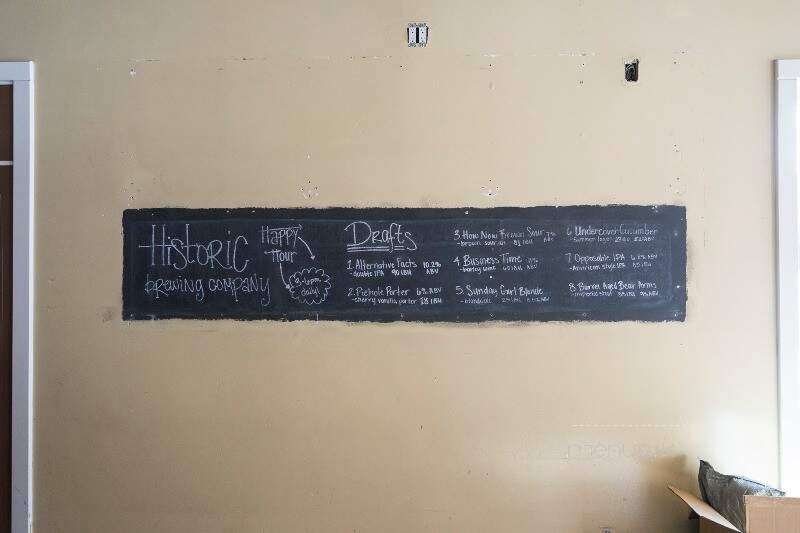 Historic
brewing company
Happy
Hour
3-6pm
daily!
Drafts
1. Alternative Facts 10.2%
-double IPA 90 IBU ABV
2. Piehole Porter 6% ABV
-cherry vanilla porter 28 IBU
3. How Now Brown Sour 7%
-brown sour ale ABV
4. Business Time
-barley wine ABV
5. Sunday Girl Blonde
-blonde ale ABV
6 Undercover Cucumber
-summer ABV
7 Opposable IPA
-American style IPA
8. Barrel Aged Bear Arms
-imperial stout ABV